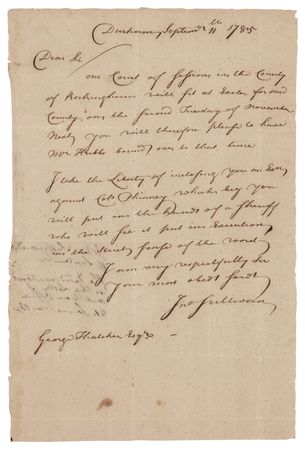 Durham Septemr 11th 1785
Dear Sir
our Court of Sessions in the County
of Rockingham will sit at Exeter for said
County on the second Tuesday of November
Next you will therefore please to have
Mr Hubbs bound over to that time
I take the Liberty of inclosing you an Exn
against Colo which I beg you
will put in the Hands of a Sheriff
who will see it put in Execution
in the strict sense of the word
I am very respectfully Sir
Your most obedt Servt
Jno Sullivan
George Thatcher Esqr